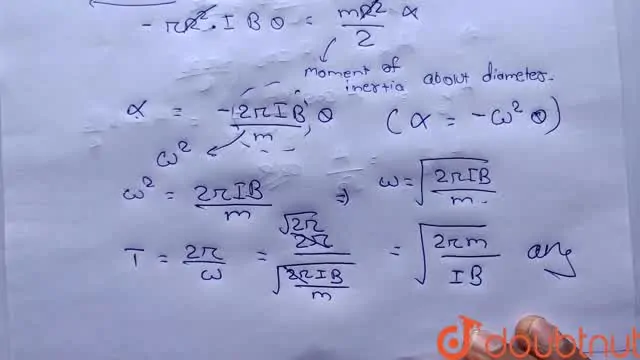 - πR². I B θ = mR²/2 α
moment of
inertia about diameter.
α = - 2πIB/m θ (α = -ω² θ)
ω²
ω² = 2πIB/m ⇒ ω = √(2πIB/m)
T = 2π/ω = √2π 2π/√(2πIB/m) = √(2πm/IB) ans
doubtnut